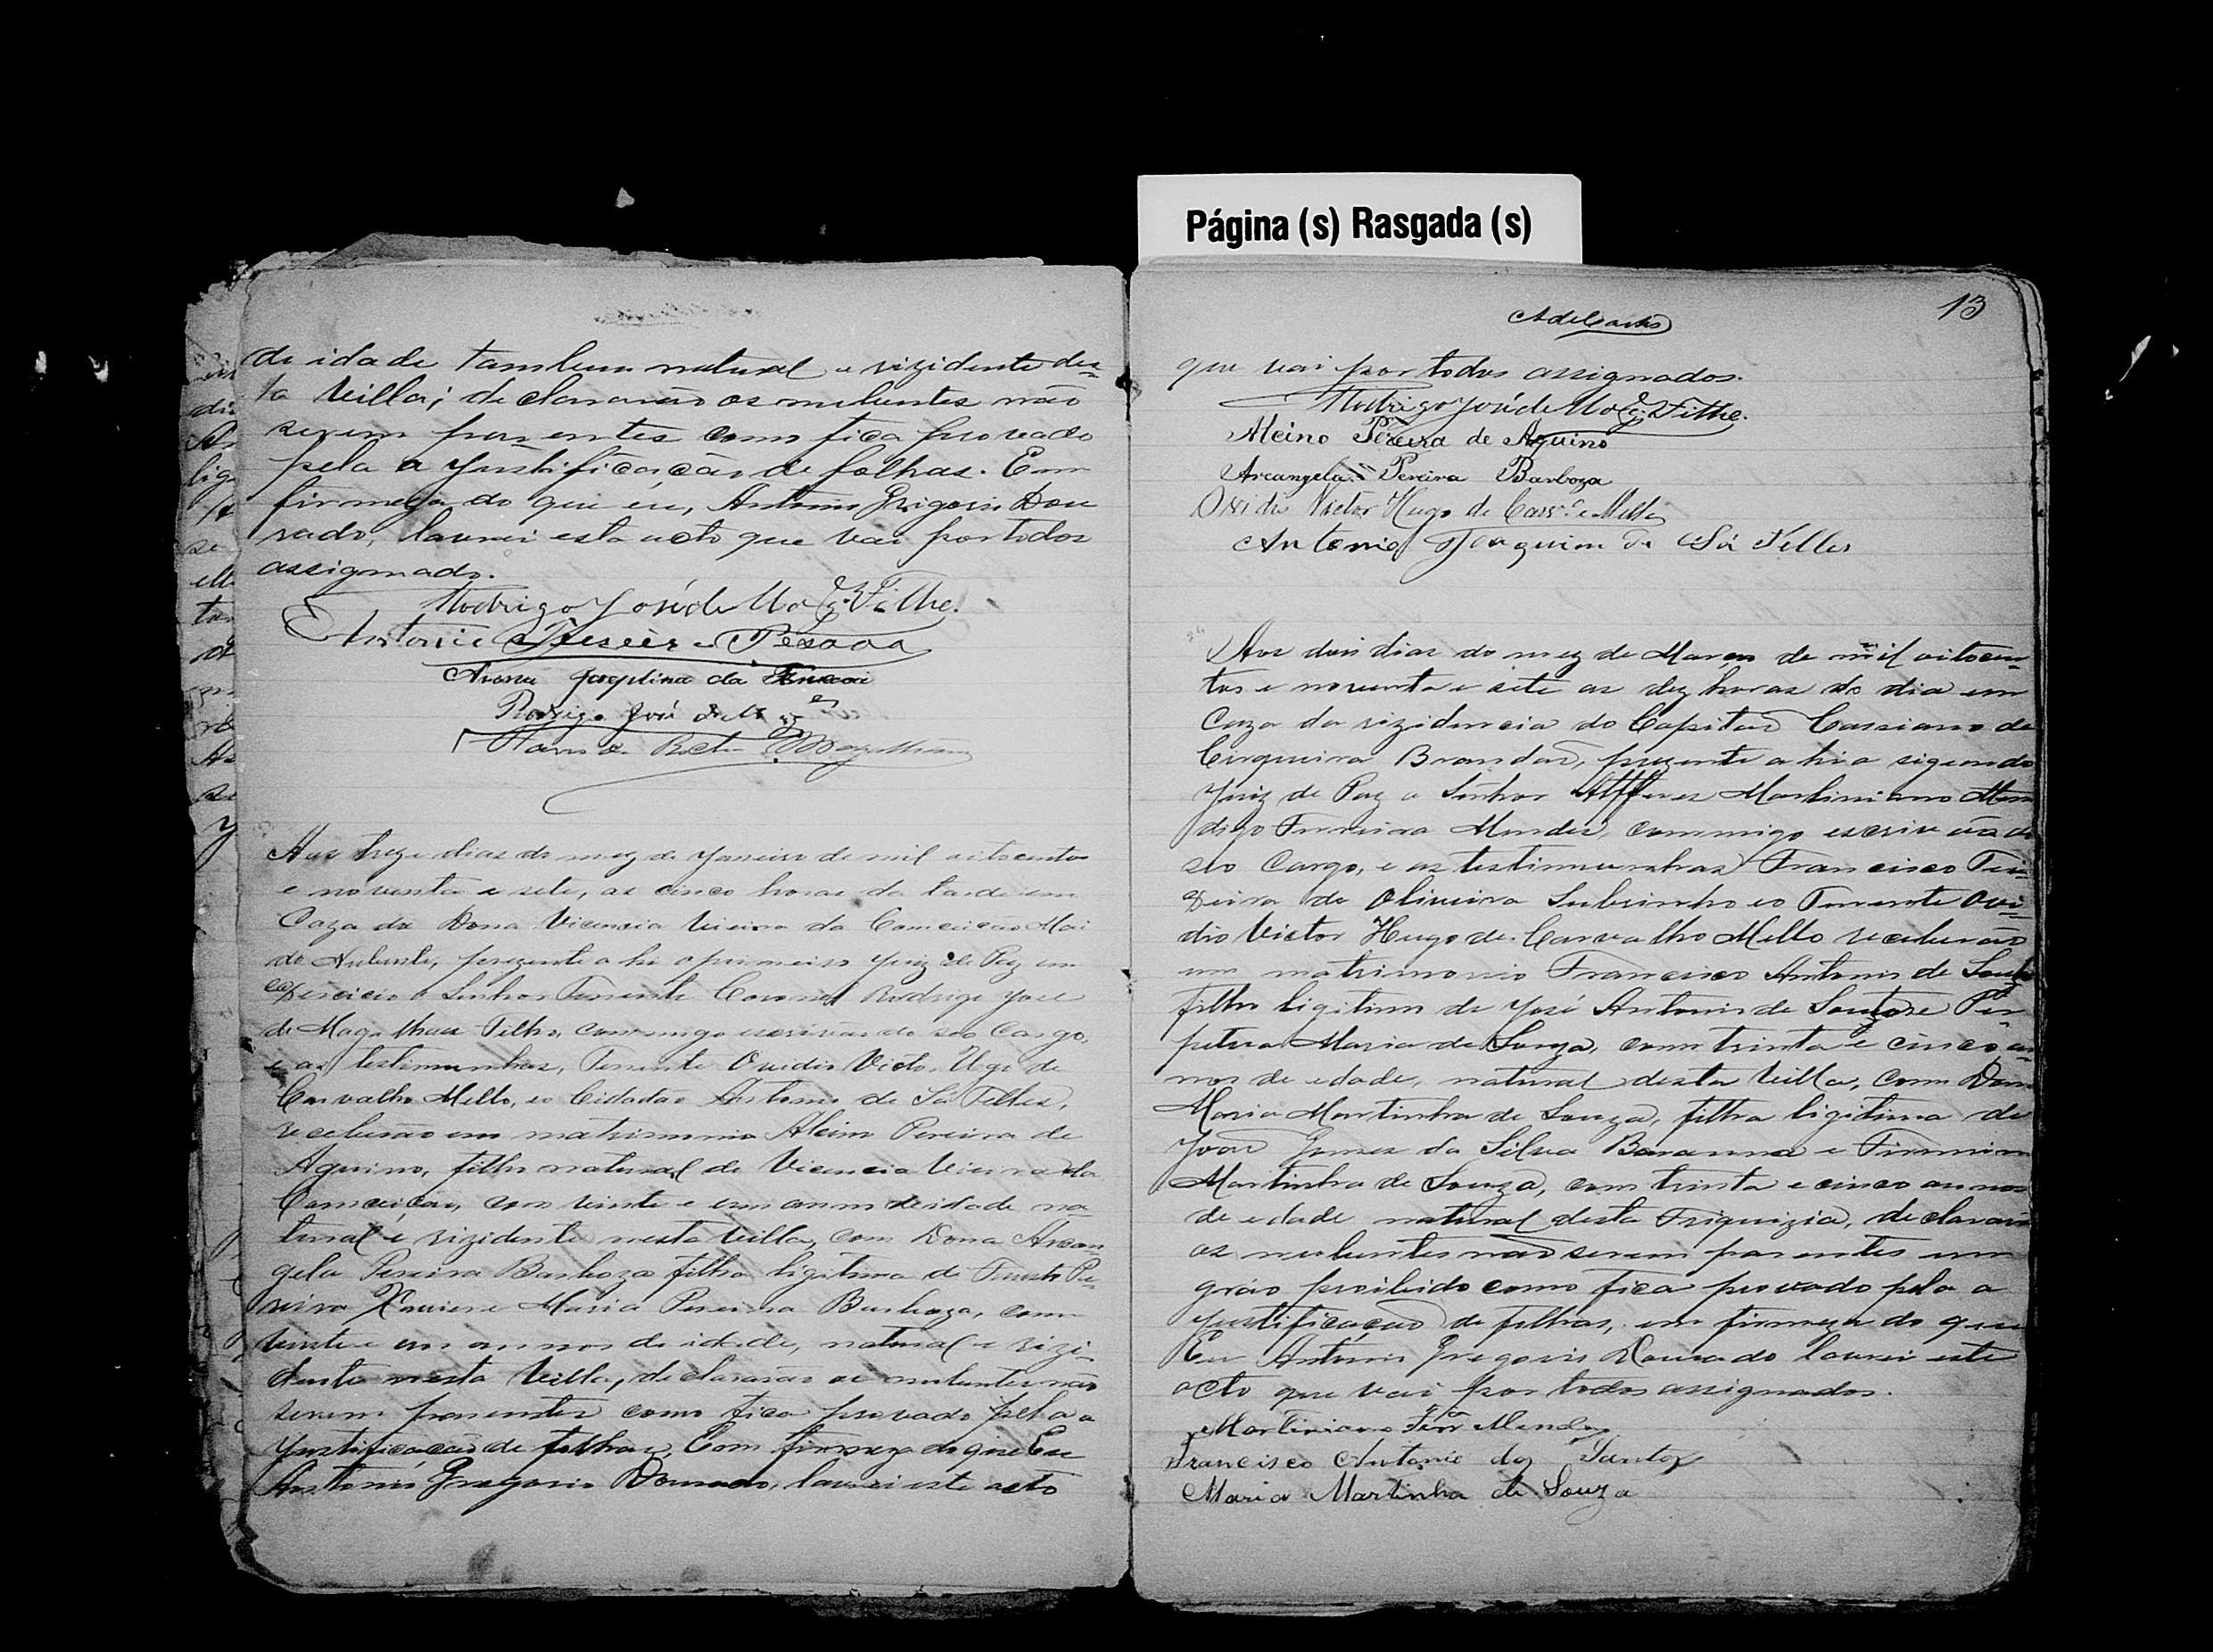 Página (s) Rasgada (s)
de idade tambem natural e rizidente des-
ta Villa; declararão os nubentes não
serem parentes como fica provado
pela a Justificação de folhas. Em
firmeza do que eu, Antonio Grigorio Dou
rado, lavrei esta acto que vai por todos
assignado.
Rodrigo José de Mag.es Filho.
Antonio Pessoa
Anna da
Rodrigo José de M
Rocha Magalhães
Aos treze dias do mez de Janeiro de mil oitocentos
e noventa e sete, as cinco horas da tarde em
Caza da Dona Vicencia Vieira da Conceição Mai
do Nubente, prezente ahi o primeiro Juiz de Paz em
exercicio o Senhor Tenente Coronel Rodrigo José
de Magalhães Filho, commigo escrivão do seo Cargo,
e as testimunhas, Tenente Ouvidio Victo Ugo de
Carvalho Mello, eo Cidadão Antonio de Sá Telles,
receberão em matrimonio Alcino Pereira de
Aquino, filho natural de Vicencia Vieira da
Conceição, com vinte e um annos de idade na-
tural e rizidente nesta Villa, com Dona Arcan-
gela Pereira Barboza filha ligitima de Pe-
reira Xavier e Maria Pereira Barboza, com
vinte e um annos de idade, natural e rizi-
dente nesta Villa, declararão os nubentes não
serem parentes como fica provado pela a
Justificação de folhas, Com firmeza do que Eu
Antonio Gregorio Dourado, lavrei este acto
13
que vai por todos assignados.
Rodrigo José de Mag.es Filho.
Alcino Pereira de Aquino
Arcangela Pereira Barboza
Ovidio Victor Hugo de Carv.o e Mello
Antonio Joaquim de Sá Telles
Aos dois dias do mez de Março de mil oitocen-
tos e noventa e sete as dez horas do dia em
Caza da rizidencia do Capitão Cassiano de
Cirqueira Brandão, prezente ahi o sigundo
Juiz de Paz o Senhor Alfferes Martiniano
Ferreira Mendes, commigo escrivão do
seo Cargo, e as testimunhas Francisco Tei-
xeira de Oliveira Subrinho eo Tenente Ovi-
dio Victor Hugo de Carvalho Mello receberão
em matrimonio Francisco Antonio de
filho ligitimo de José Antonio de e Per-
petua Maria de Souza, com trinta e cinco an-
nos de edade, natural desta Villa, com Dona
Maria Martinha de Souza, filha ligitima de
João Gomes da Silva Barauna e
Martinha de Souza, com trinta e cinco annos
de edade natural desta Friguizia, declararão
os nubentes não serem parentes em
gráo proibido como fica provado pela a
Justificação de folhas, em firmeza do que
Eu Antonio Gregorio Dourado lavrei este
acto que vai por todos assignados.
Martiniano Ferr.a Mendes
Francisco Antonio dos Santos
Maria Martinha de Souza